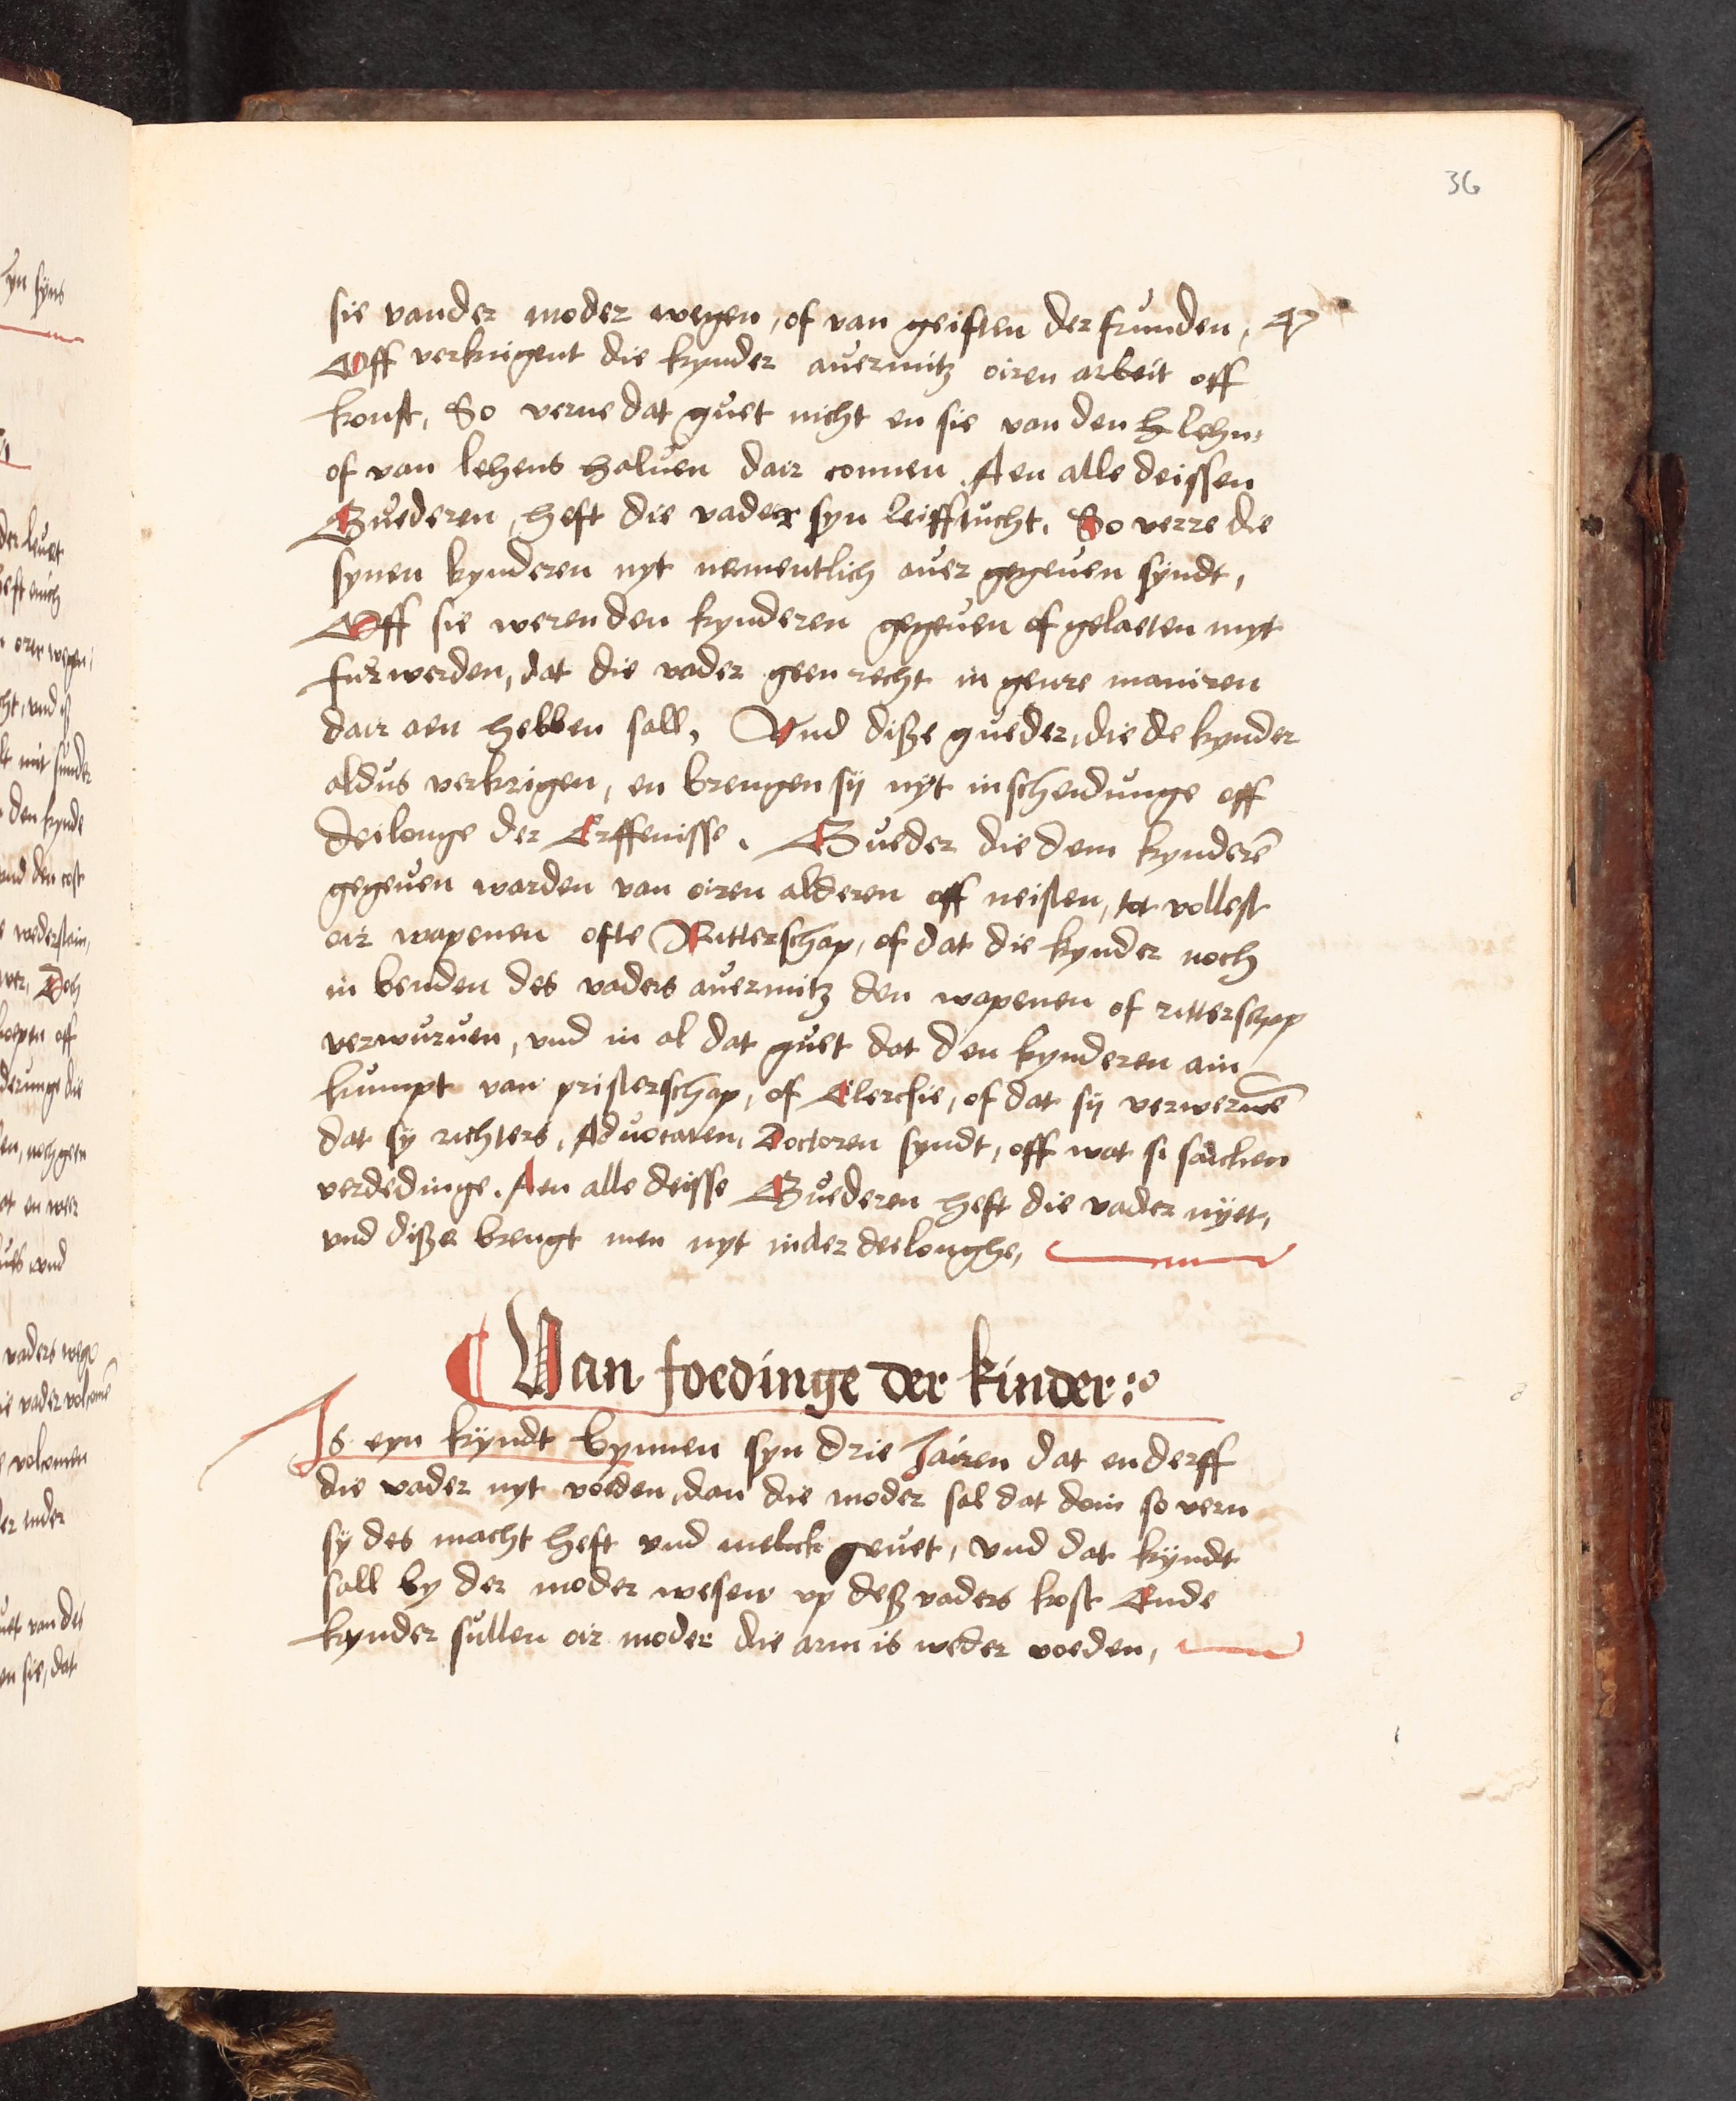 36
sie vander moder wegen, of van geiften der frunden,
Off verkrigent die kynder auermitz oiren arbeit off
konst, So verne dat guet nicht en sie van den h lehn:
of van lehens haluen dair comen. Aen alle deissen
Guederen, heft die vader syn leifftucht. So verre die
synen kynderen nyt nementlich auer gegeuen syndt,
Off sie weren den kynderen gegeuen of gelaeten myt
furwerden, dat die vader geen recht in genre maniren
dair aen hebben sall, Vnd diße gueder, die de kynder
aldus verkrigen, en brengen sij nyt in scheidunge off
deilonge der Erffenisse. Gueder die dem kynderē
gegeuen warden van oiren alderen off neisten, tot vollest
oir wapenen ofte Ritterschap, of dat die kynder noch
in benden des vaders auermitz den wapenen of ritterschap
verwuruen, vnd in al dat guet dat den kynderen ain
kumpt van pristerschap, of Clercsie, of dat sij verwerwē
dat sy richters, Aduocaten, Doctoren syndt, off wat si saichen
verdedinge. Aen alle deisse Guederen heft die vader nyet,
vnd diße brengt men nyt inder deelonghe,
¶ Van foedinge der kinder:
Is eyn kyndt bynnen syn drie Jairen dat en derff
die vader nyt voeden, dan die moder sal dat doin so vern
sy des macht heft vnd melck geuet, vnd dat kyndt
sall by der moder wesen vp deß vaders kost Ende
kynder sullen oir moder die arm is weder voeden,